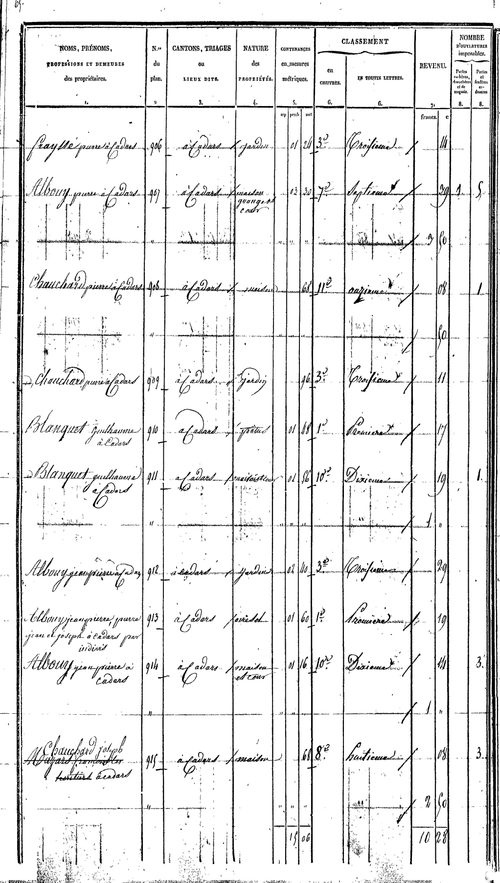 NOMS, PRÉNOMS,
PROFESSIONS ET DEMEURES
des propriétaires.
1.
N.os
du
plan.
2
CANTONS, TRIAGES
ou
LIEUX DITS.
3.
NATURE
des
PROPRIÉTÉS.
4.
CONTENANCES
en mesures
métriques.
5.
CLASSEMENT
en
CHIFFRES.
6.
EN TOUTES LETTRES.
6.
REVENU.
7.
NOMBRE
D'OUVERTURES
imposables.
8. 8.
francs. c
Fraysse pierre à Cadars 906 à Cadars jardin 01 24 3e Troisieme 14
Albouy pierre à Cadars 907 à Cadars maison 03 30 7e Septieme 29 1 5
grange et
cour
" 3 50
Chauchard pierre à Cadars 908 à Cadars maison 68 11e onzieme 08 1
50
Chauchard pierre à Cadars 909 à Cadars jardin 96 3e Troisieme 11
Blanquet guilhaume 910 à Cadars 01 68 1e Premiere 17
à Cadars
Blanquet guilhaume 911 à Cadars 01 56 10e Dixieme 19 1
à Cadars
" 1 "
Albouy jean pierre à Cadars 912 à Cadars jardin 02 40 3e Troisieme 29
Albouy jean pierre, pierre 913 à Cadars 01 60 1e Premiere 19
jean et joseph à Cadars par
indivis
Albouy jean pierre à 914 à Cadars maison 01 16 10e Dixieme 14 3
Cadars et cour
" 1 "
Chauchard joseph
915 à Cadars maison 68 8e huitieme 08 3
à Cadars
" 2 50
15 06 10 28